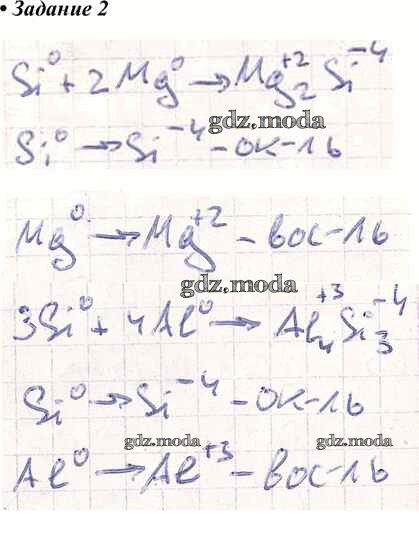 • Задание 2
Si⁰ + 2Mg⁰ → Mg₂⁺² Si⁻⁴
gdz.moda
Si⁰ → Si⁻⁴ – ок-ль
Mg⁰ → Mg⁺² – вос-ль
gdz.moda
3Si⁰ + 4Al⁰ → Al₄⁺³ Si₃⁻⁴
Si⁰ → Si⁻⁴ – ок-ль
gdz.moda gdz.moda
Al⁰ → Al⁺³ – вос-ль